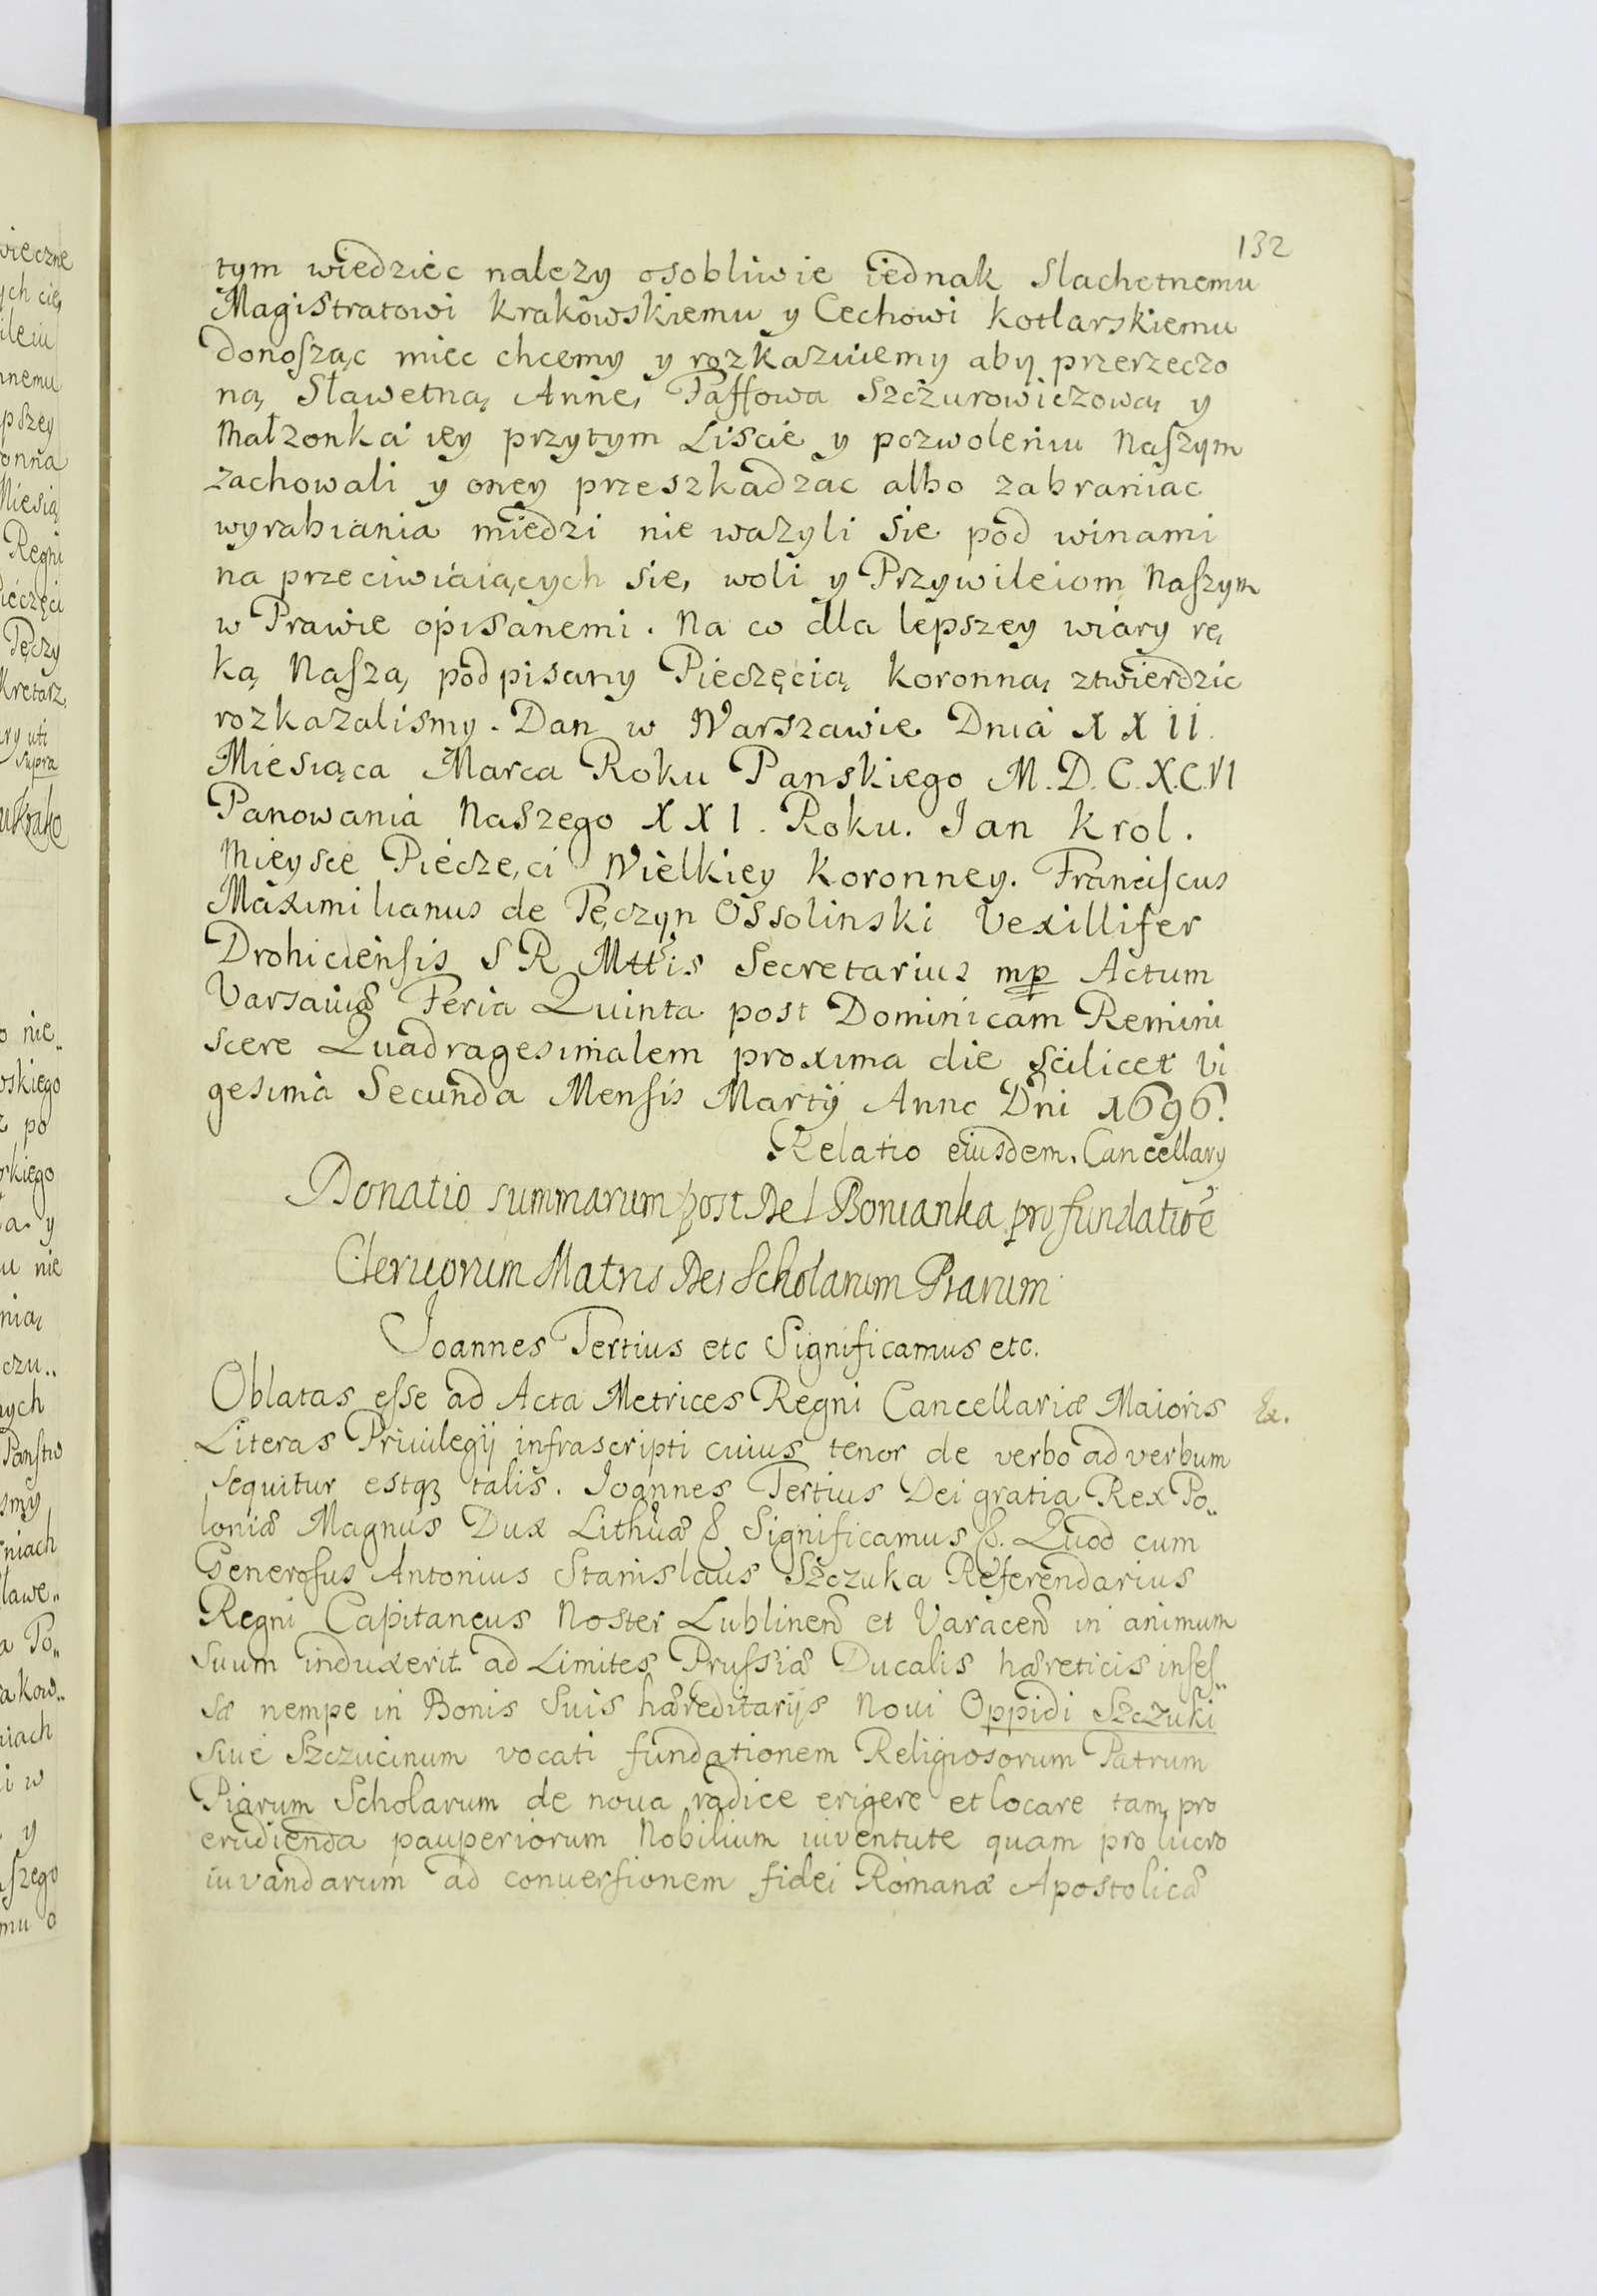 132
tym wiedziec nalezy osobliwie iednak Slachetnemu
Magistratowi Krakowskiemu y Cechowi Kotlarskiemu
donosząc miec chcemy y rozkazuiemy aby przerzeczo
ną Sławetną Annę Paffowa Szczurowiczową y
Małzonka iey przytym Liscie y pozwoleniu Naszym
zachowali y oney przeszkadzac albo zabraniac
wyrabiania miedzi nie wazyli Sie pod winami
na przeciwiaiących się woli y Przywileiom Naszym
w Prawie opisanemi. Na co dla lepszey wiary rę
ką Naszą podpisany Pieczęcią Koronną ztwierdzic
rozkazalismy. Dan w Warszawie Dnia XXII.
Miesiąca Marca Roku Panskiego M.D.C.X.C.VI
Panowania Naszego XXI. Roku. Jan Krol.
Mieysce Pieczęci Wielkiey Koronney. Franciscus
Maximilianus de Tęczyn Ossolinski Vexillifer
Drohiciensis S R Mttis Secretarius mp Actum
Varsaviæ Feria Quinta post Dominicam Remini
scere Quadragesimalem proxima die scilicet Vi
gesima Secunda Mensis Martij Anno Dni 1696.
Relatio eiusdem. Cancellary
Donatio summarum post Del Bonianka pro fundatioē
Clericorum Matris Dei Scholarum Piarum
Joannes Tertius etc Significamus etc.
Oblatas esse ad Acta Metrices Regni Cancellariæ Maioris
Literas Privilegij infrascripti cuius tenor de verbo ad verbum
sequitur estqʒ talis. Joannes Tertius Dei gratia Rex Po„
loniæ Magnus Dux Lithuæ & Significamus &. Quod cum
Generosus Antonius Stanislaus Szczuka Referendarius
Regni Capitaneus Noster Lublinen et Varacen in animum
suum induxerit ad Limites Prussiæ Ducalis hæreticis infes„
sæ nempe in Bonis Suis hæreditarijs Novi Oppidi Szczuki
sive Szczucinum vocati fundationem Religiosorum Patrum
Piarum Scholarum de nova radice erigere et locare tam pro
erudienda pauperiorum Nobilium iuventute quam pro lucro
iuvandarum ad conversionem fidei Romanæ Apostolicæ